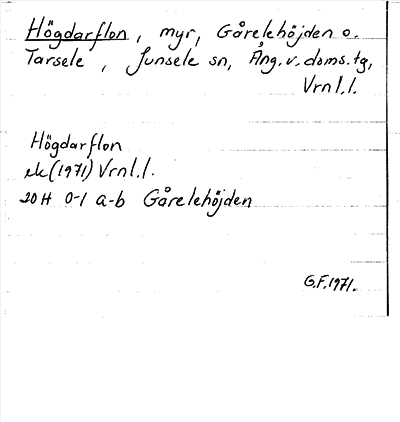 Högdarflon, myr, Gårelehöjden o.
Tarsele, Junsele sn, Ång. v. doms. tg,
Vrnl.l.
Högdarflon
ek (1971) Vrnl.l.
20H 0-1 a-b Gårelehöjden
G.F. 1971.